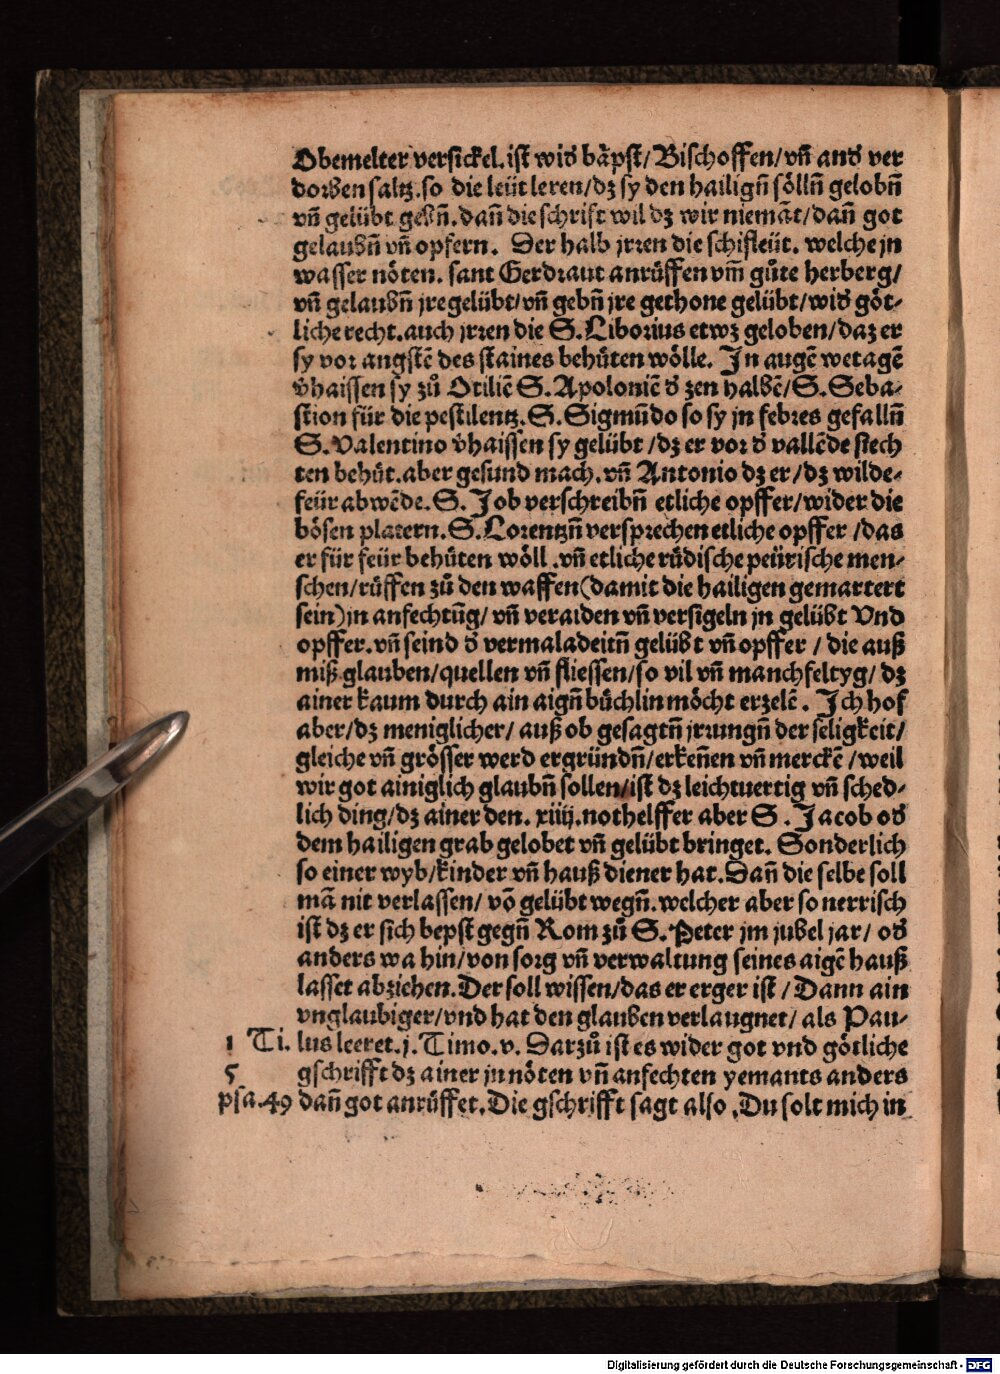 Obemelter versickel. ist wiđ bäpst/ Bischoffen/ vñ anđ ver
dorben saltz. so die leüt leren/ dz sy den hailigñ söllñ gelobñ
vñ gelübt gebñ. dañ die schrift wil dz wir niemāt/ dañ got
gelaubñ vñ opfern. Der halb jrren die schifleüt. welche jn
wasser nöten. sant Gerdraut anrůffen vm̃ gůte herberg/
vñ gelaubñ jre gelübt/ vñ gebñ jre gethone gelübt/ wiđ göt-
liche recht. auch jrren die S. Liborius etwz geloben/ daz er
sy vor angstē des staines behůten wölle. In augē wetagē
v̄haissen sy zů Otiliē S. Apoloniē đ zen halbē/ S. Seba-
stion für die pestilentz. S. Sigmūdo so sy jn febres gefallñ
S. Valentino v̄haissen sy gelübt / dz er vor đ vallēde siech
ten behůt. aber gesund mach. vñ Antonio dz er/ dz wilde-
feür abwēde. S. Job verschreibñ etliche opffer/ wider die
bösen platern. S. Lorentzñ versprechen etliche opffer / das
er für feür behůten wöll . vñ etliche rüdische peürische men-
schen/ růffen zů den waffen (damit die hailigen gemartert
sein) jn anfechtūg/ vñ veraiden vñ versigeln jn gelübt Vnd
opffer. vñ seind đ vermaladeitñ gelübt vñ opffer / die auß
miß glauben/ quellen vñ fliessen/ so vil vñ manchfeltyg/ dz
ainer kaum durch ain aigñ büchlin möcht erzelē. Ich hof
aber/ dz meniglicher/ auß ob gesagtñ jrrungñ der seligkeit/
gleiche vñ grösser werd ergründñ/ erkeñen vñ merckē / weil
wir got ainiglich glaubñ sollen/ ist dz leichtuertig vñ sched-
lich ding/ dz ainer den. xiiij. nothelffer aber S. Jacob ođ
dem hailigen grab gelobet vñ gelübt bringet. Sonderlich
so einer wyb/ kinder vñ hauß diener hat. Dañ die selbe soll
mā nit verlassen/ vō gelübt wegñ. welcher aber so nerrisch
ist dz er sich bepst gegñ Rom zů S. Peter jm jubel jar/ ođ
anders wa hin/ von sorg vñ verwaltung seines aigē hauß
lasset abziehen. Der soll wissen/ das er erger ist / Dann ain
vnglaubiger/ vnd hat den glauben verlaugnet/ als Pau-
1 Ti. lus leeret. j. Timo. v. Darzů ist es wider got vnd götliche
5 gschrifft dz ainer jn nöten vñ anfechten yemants anders
psa. 49 dañ got anrůffet. Die gschrifft sagt also. Du solt mich in
Digitalisierung gefördert durch die Deutsche Forschungsgemeinschaft - DFG